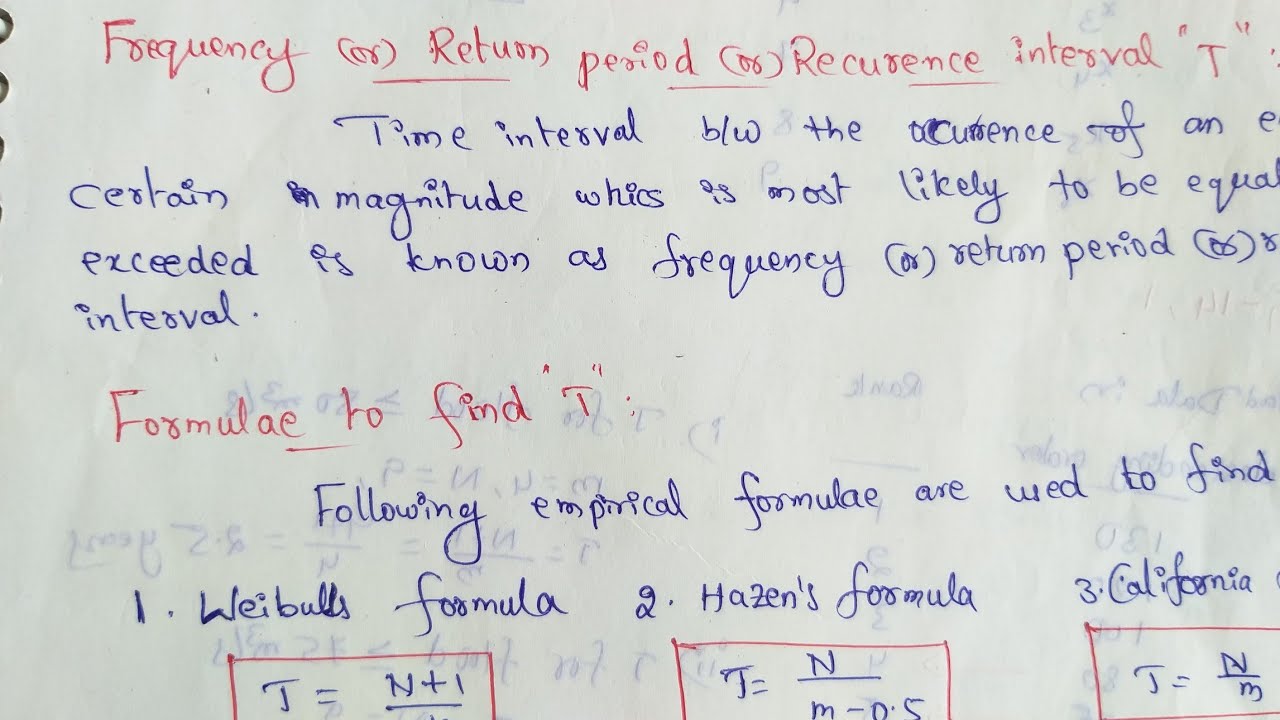 Frequency (or) Return period (or) Recurence interval "T" :
Time interval b/w the occurence of an e
certain magnitude whics is most likely to be equal
exceeded is known as frequency (or) return period (or) r
interval.
Formulae to find "T" :
Following empirical formulae are used to find
1. Weibulls formula 2. Hazen's formula 3. California
T = N+1 T = N / m - 0.5 T = N / m